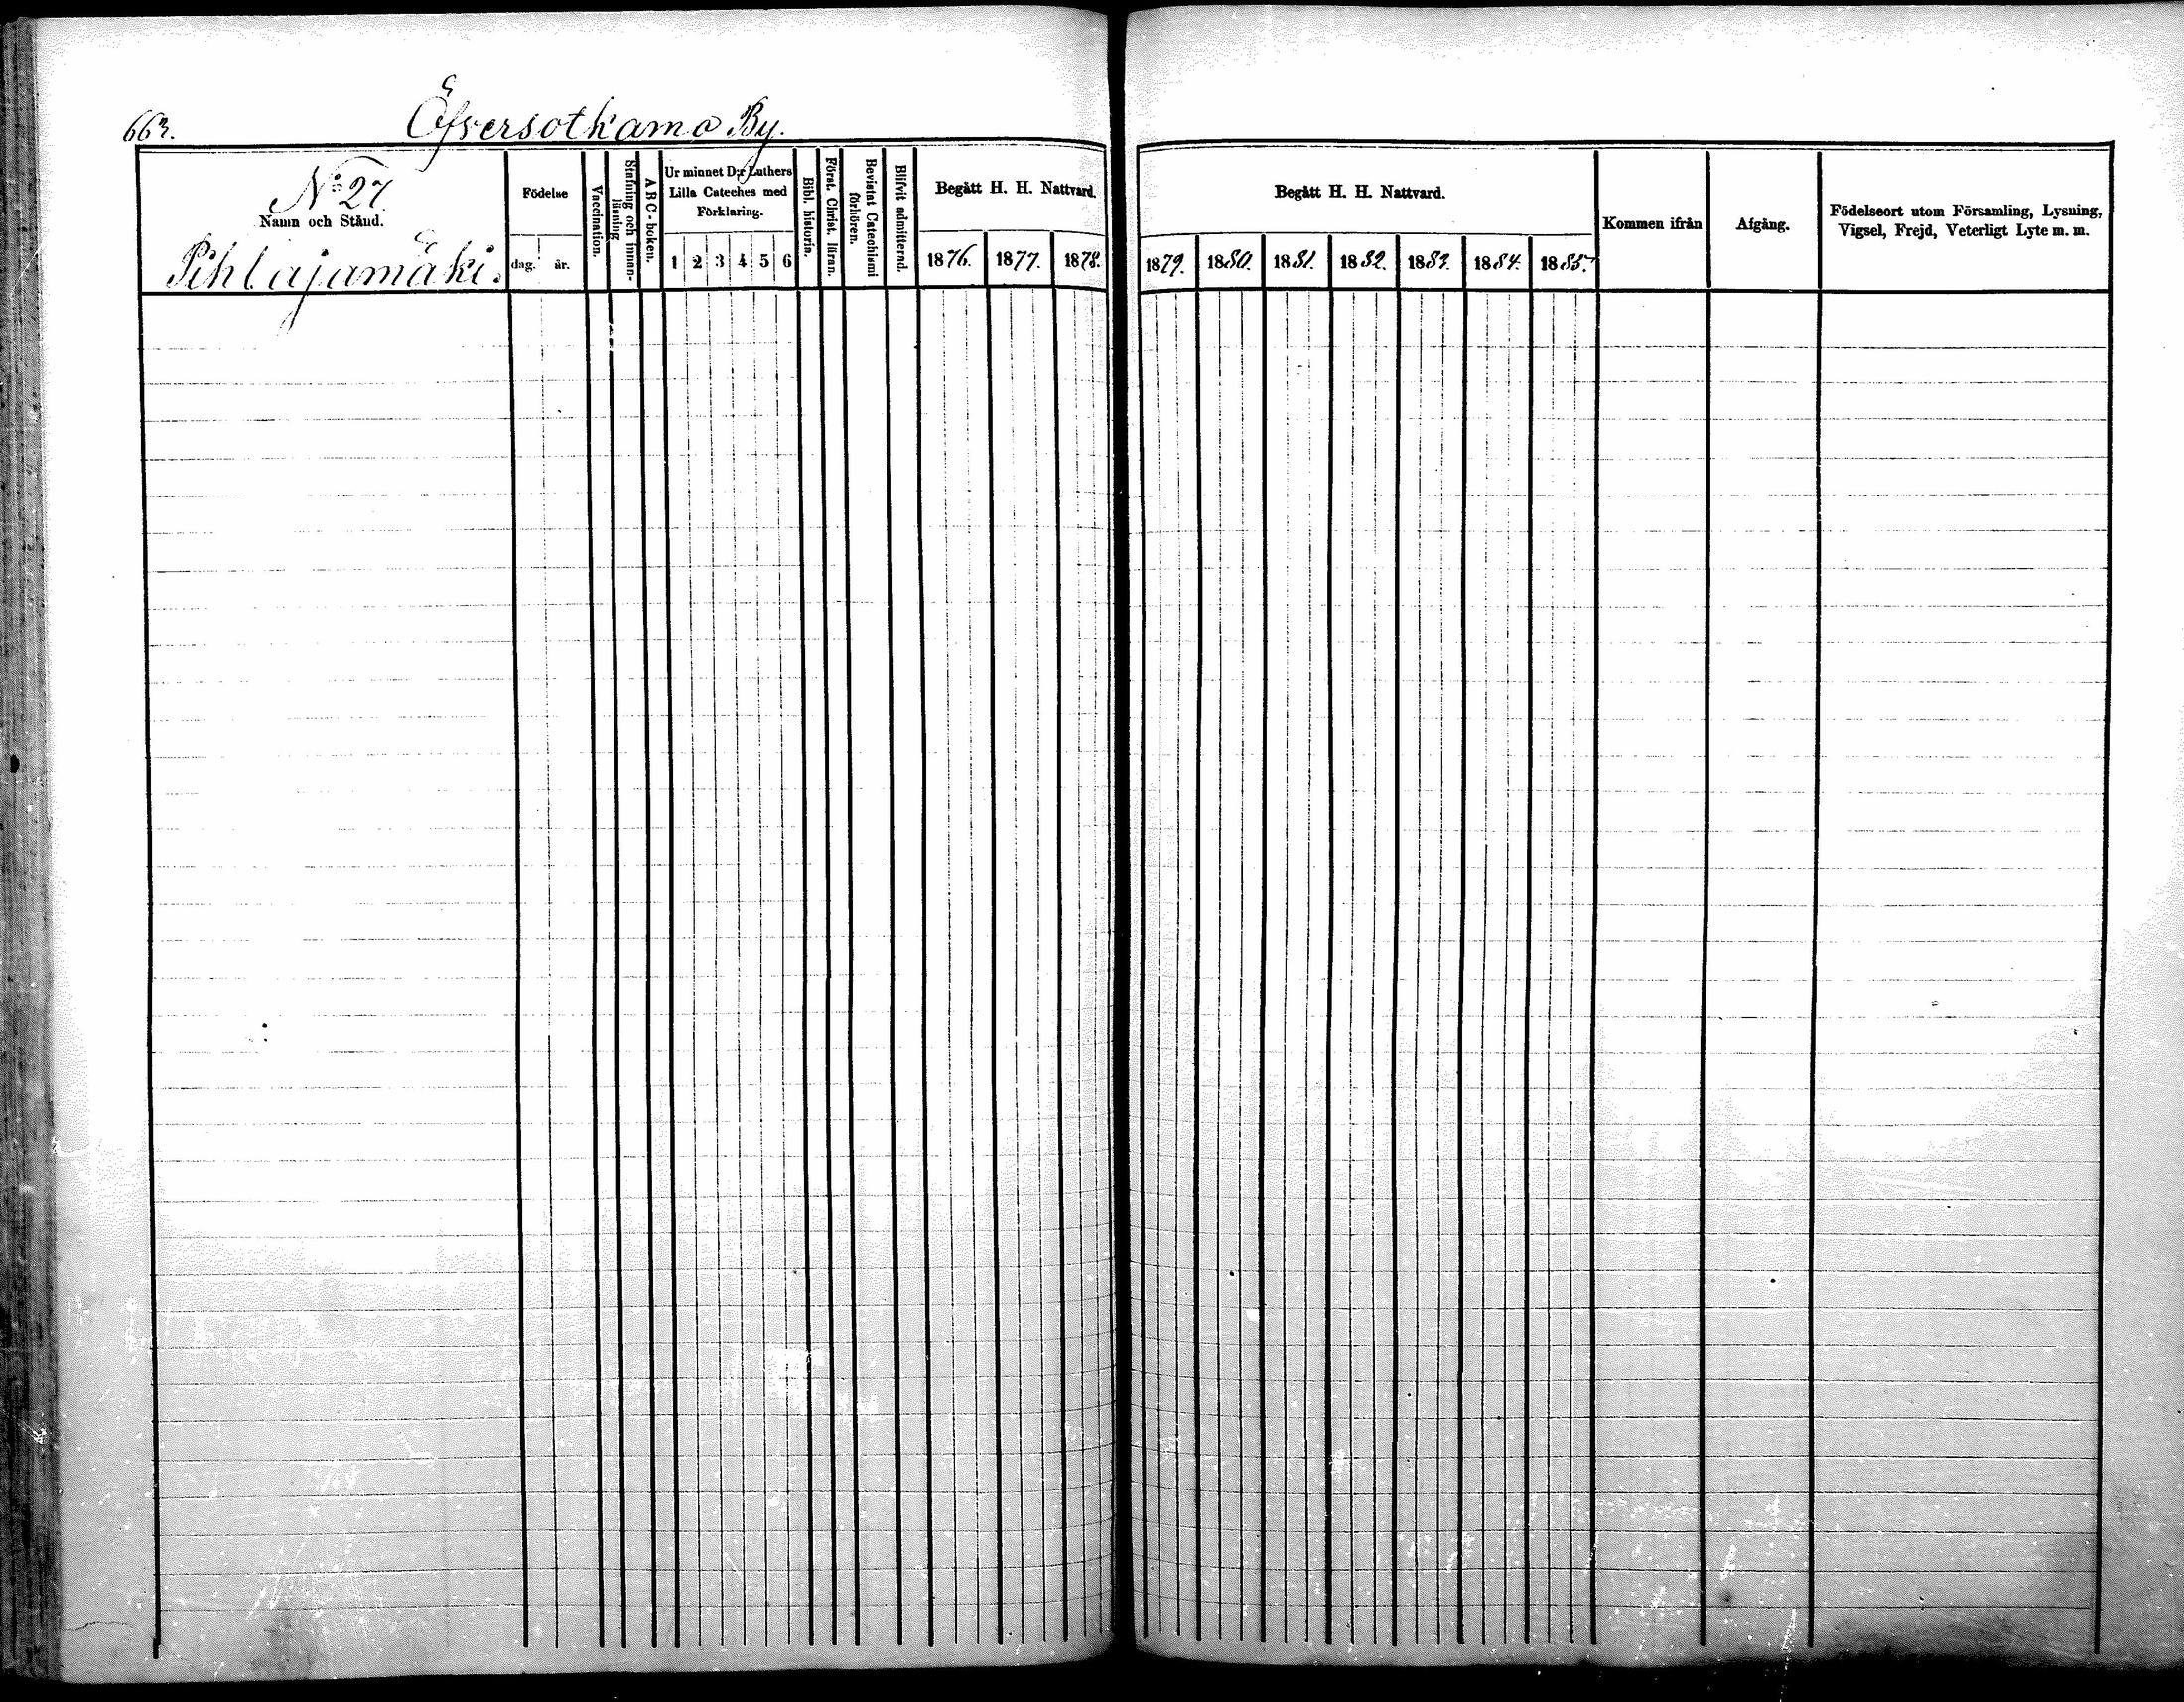 663.
Öfversotkamo By.
No 27.
Namn och Stånd.
Pihlajamäki.
Födelse
dag. år.
Vaccination.
Stafning och innan-
läsning
ABC-boken.
Ur minnet D:r Luthers
Lilla Cateches med
Förklaring.
1 2 3 4 5 6
Bibl. historia.
Först. Christ. läran.
Bevistat Catechismi
förhören.
Blifvit admitterad.
Begått H. H. Nattvard.
1876. 1877. 1878.
Begått H. H. Nattvard.
1879. 1880. 1881. 1882. 1883. 1884. 1885.
Kommen ifrån
Afgång.
Födelseort utom Församling, Lysning,
Vigsel, Frejd, Veterligt Lyte m. m.